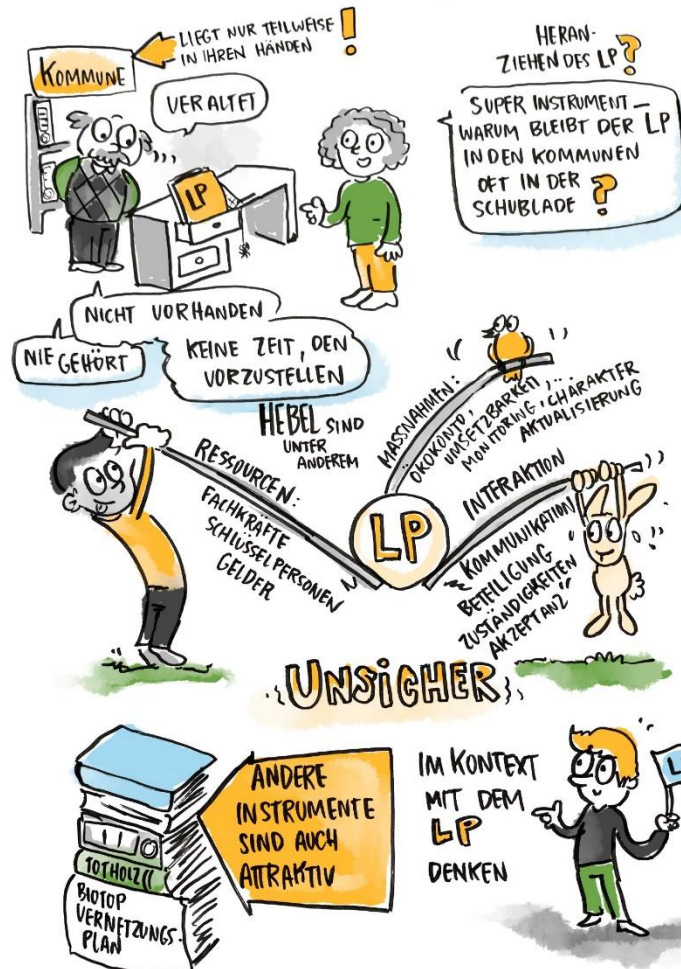 LIEGT NUR TEILWEISE
IN IHREN HÄNDEN !
KOMMUNE
VERALTET
LP
HERAN-
ZIEHEN DES LP ?
SUPER INSTRUMENT –
WARUM BLEIBT DER LP
IN DEN KOMMUNEN
OFT IN DER
SCHUBLADE ?
NICHT VORHANDEN
NIE GEHÖRT
KEINE ZEIT, DEN
VORZUSTELLEN
HEBEL SIND
UNTER
ANDEREM
RESSOURCEN:
FACHKRÄFTE
SCHLÜSSELPERSONEN
GELDER
MASSNAHMEN:
ÖKOKONTO,
UMSETZBARKEIT,...
MONITORING, CHARAKTER
AKTUALISIERUNG
LP
INTERAKTION
KOMMUNIKATION
BETEILIGUNG
ZUSTÄNDIGKEITEN
AKZEPTANZ
UNSICHER
ANDERE
INSTRUMENTE
SIND AUCH
ATTRAKTIV
TOTHOLZ
BIOTOP
VERNETZUNGS-
PLAN
IM KONTEXT
MIT DEM
LP
DENKEN
L